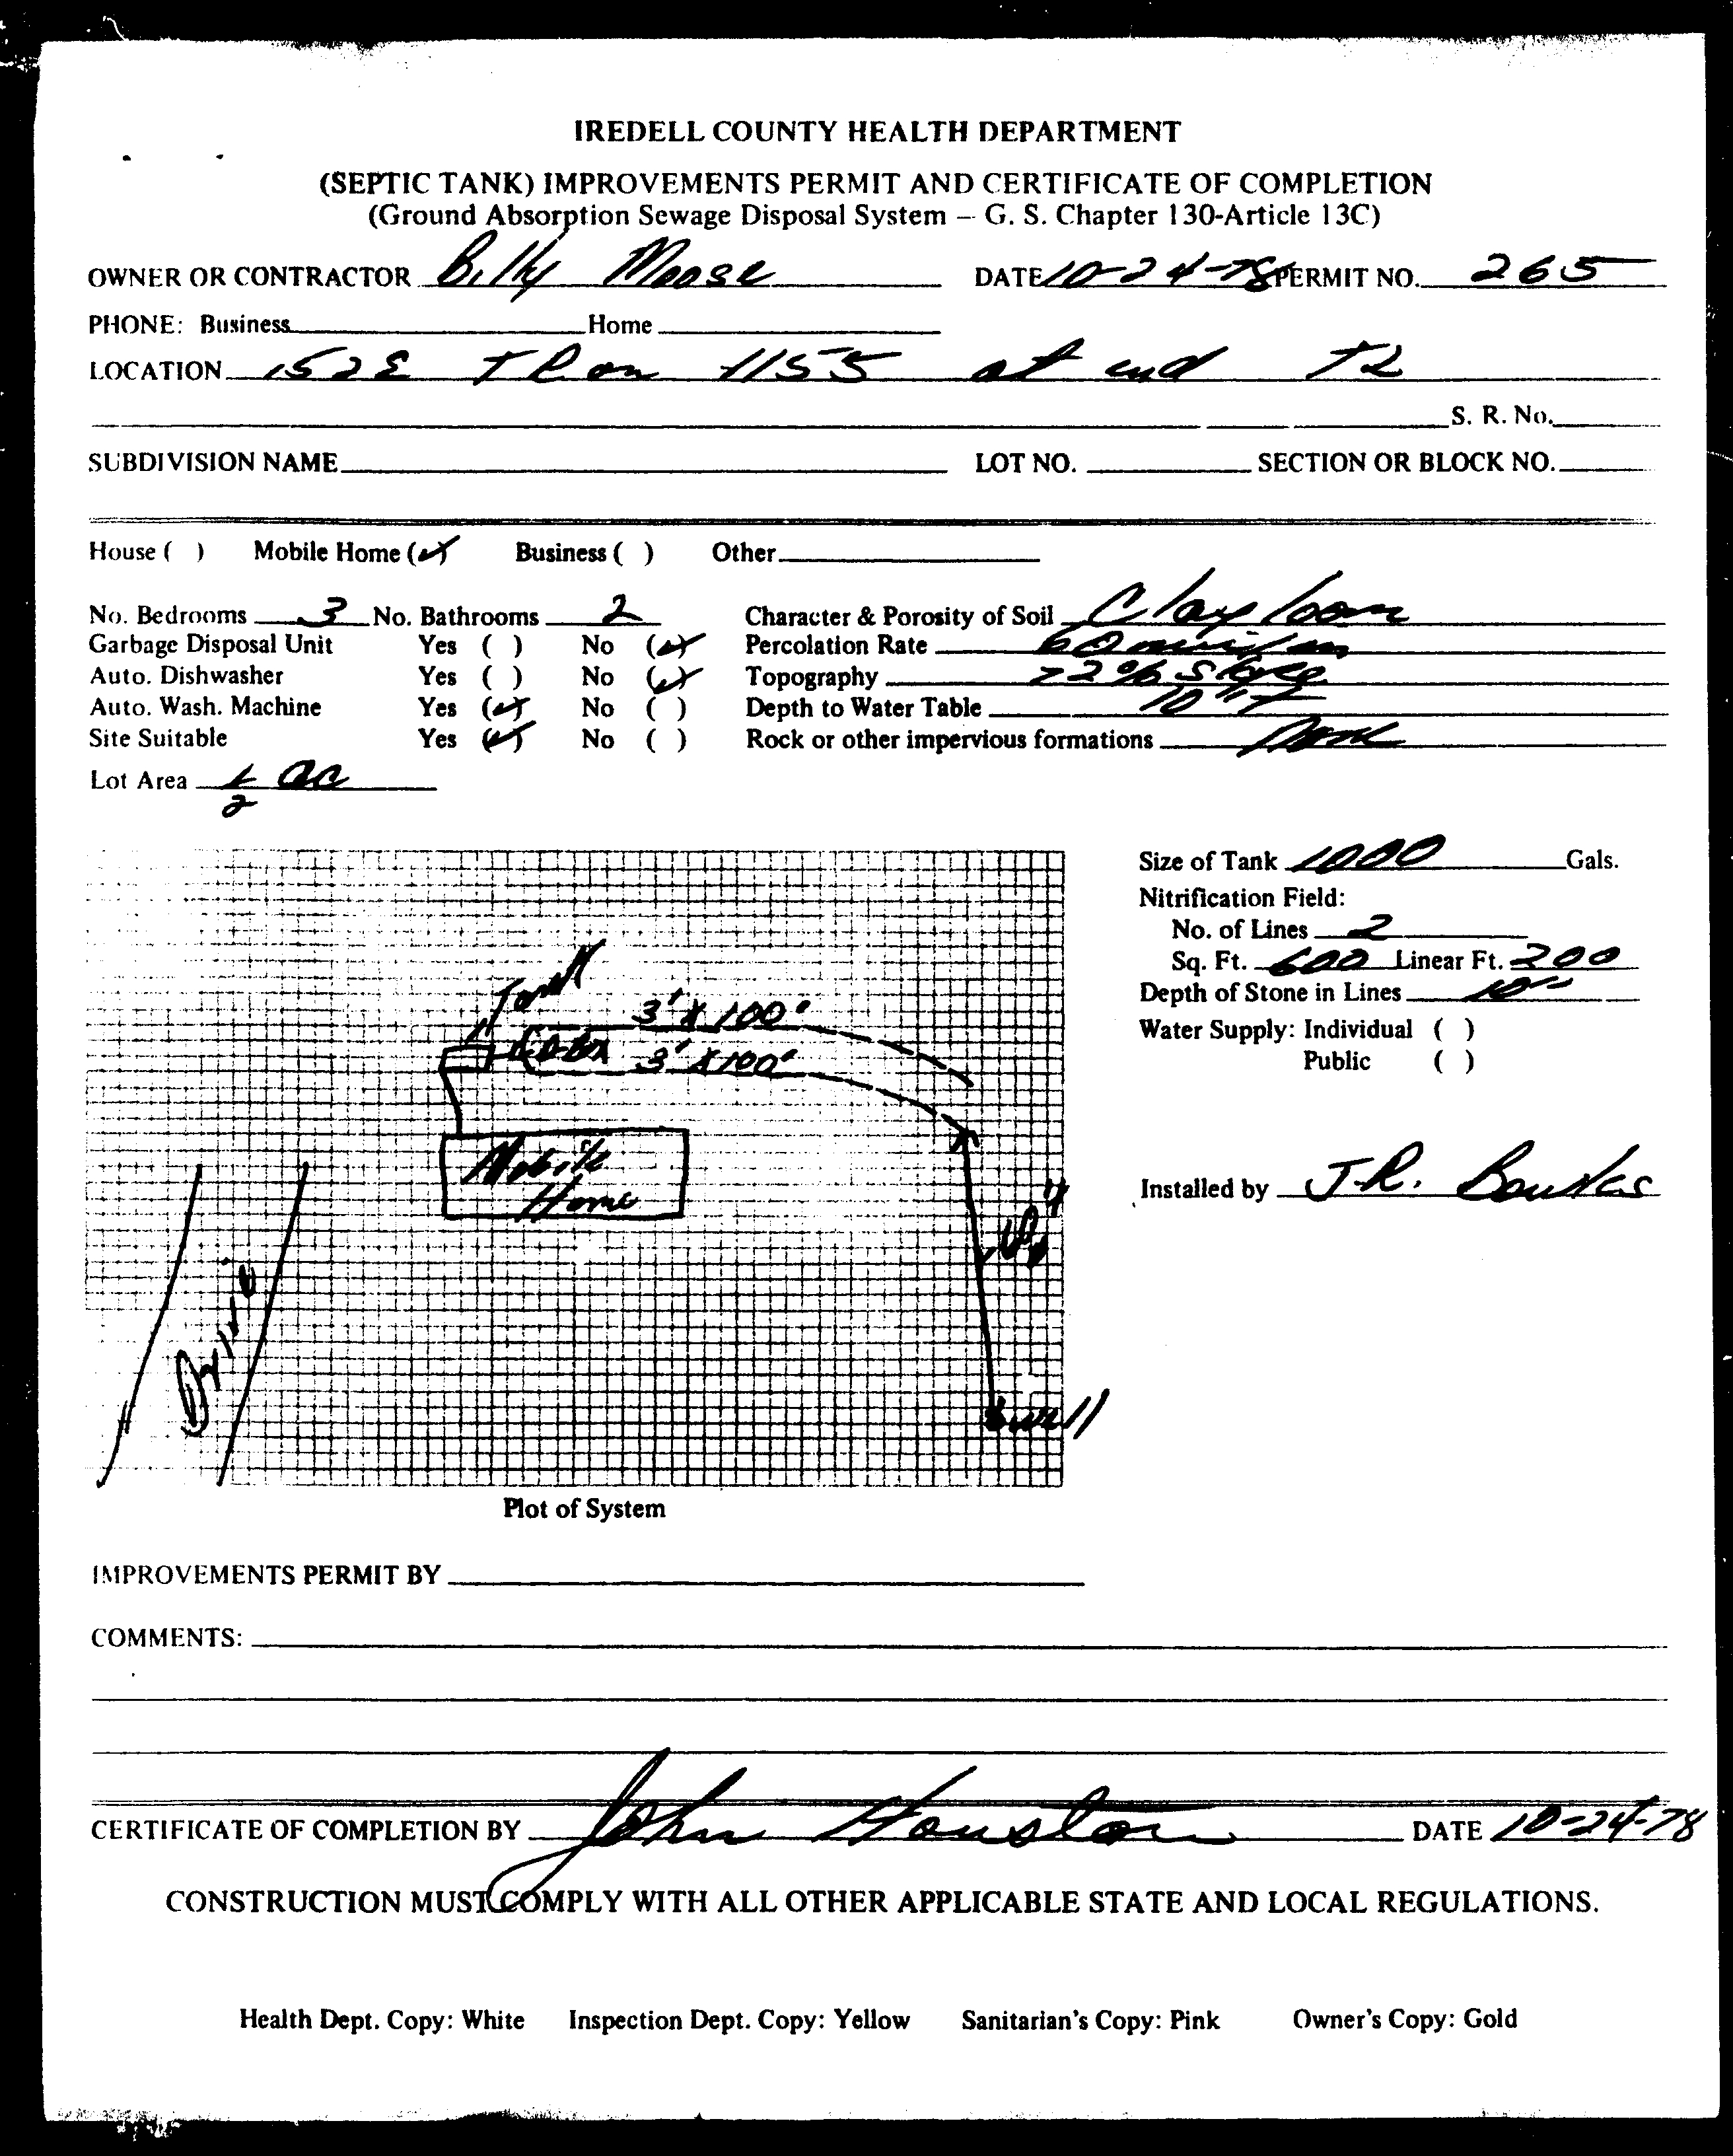 IREDELL COUNTY HEALTH DEPARTMENT
(SEPTIC TANK) IMPROVEMENTS PERMIT AND CERTIFICATE OF COMPLETION
(Ground Absorption Sewage Disposal System – G. S. Chapter 130-Article 13C)
OWNER OR CONTRACTOR Billy Moose DATE 10-24-78 PERMIT NO. 265
PHONE: Business Home
LOCATION 152 E TR on 1155 at end TL
S. R. No.
SUBDIVISION NAME LOT NO. SECTION OR BLOCK NO.
House ( ) Mobile Home (✓) Business ( ) Other
No. Bedrooms 3 No. Bathrooms 2 Character & Porosity of Soil Clay loam
Garbage Disposal Unit Yes ( ) No (✓) Percolation Rate 60 min/in
Auto. Dishwasher Yes ( ) No (✓) Topography >2% Slope
Auto. Wash. Machine Yes (✓) No ( ) Depth to Water Table 10'
Site Suitable Yes (✓) No ( ) Rock or other impervious formations None
Lot Area 1/2 ac
Size of Tank 1000 Gals.
Nitrification Field:
No. of Lines 2
Sq. Ft. 600 Linear Ft. 200
Depth of Stone in Lines 10"
Water Supply: Individual ( )
Public ( )
Installed by J.R.
Tank
3' X 100'
D-Box 3' X 100'
Mobile
Home
Drive
well
Plot of System
IMPROVEMENTS PERMIT BY
COMMENTS:
CERTIFICATE OF COMPLETION BY John Houston DATE 10-24-78
CONSTRUCTION MUST COMPLY WITH ALL OTHER APPLICABLE STATE AND LOCAL REGULATIONS.
Health Dept. Copy: White Inspection Dept. Copy: Yellow Sanitarian's Copy: Pink Owner's Copy: Gold